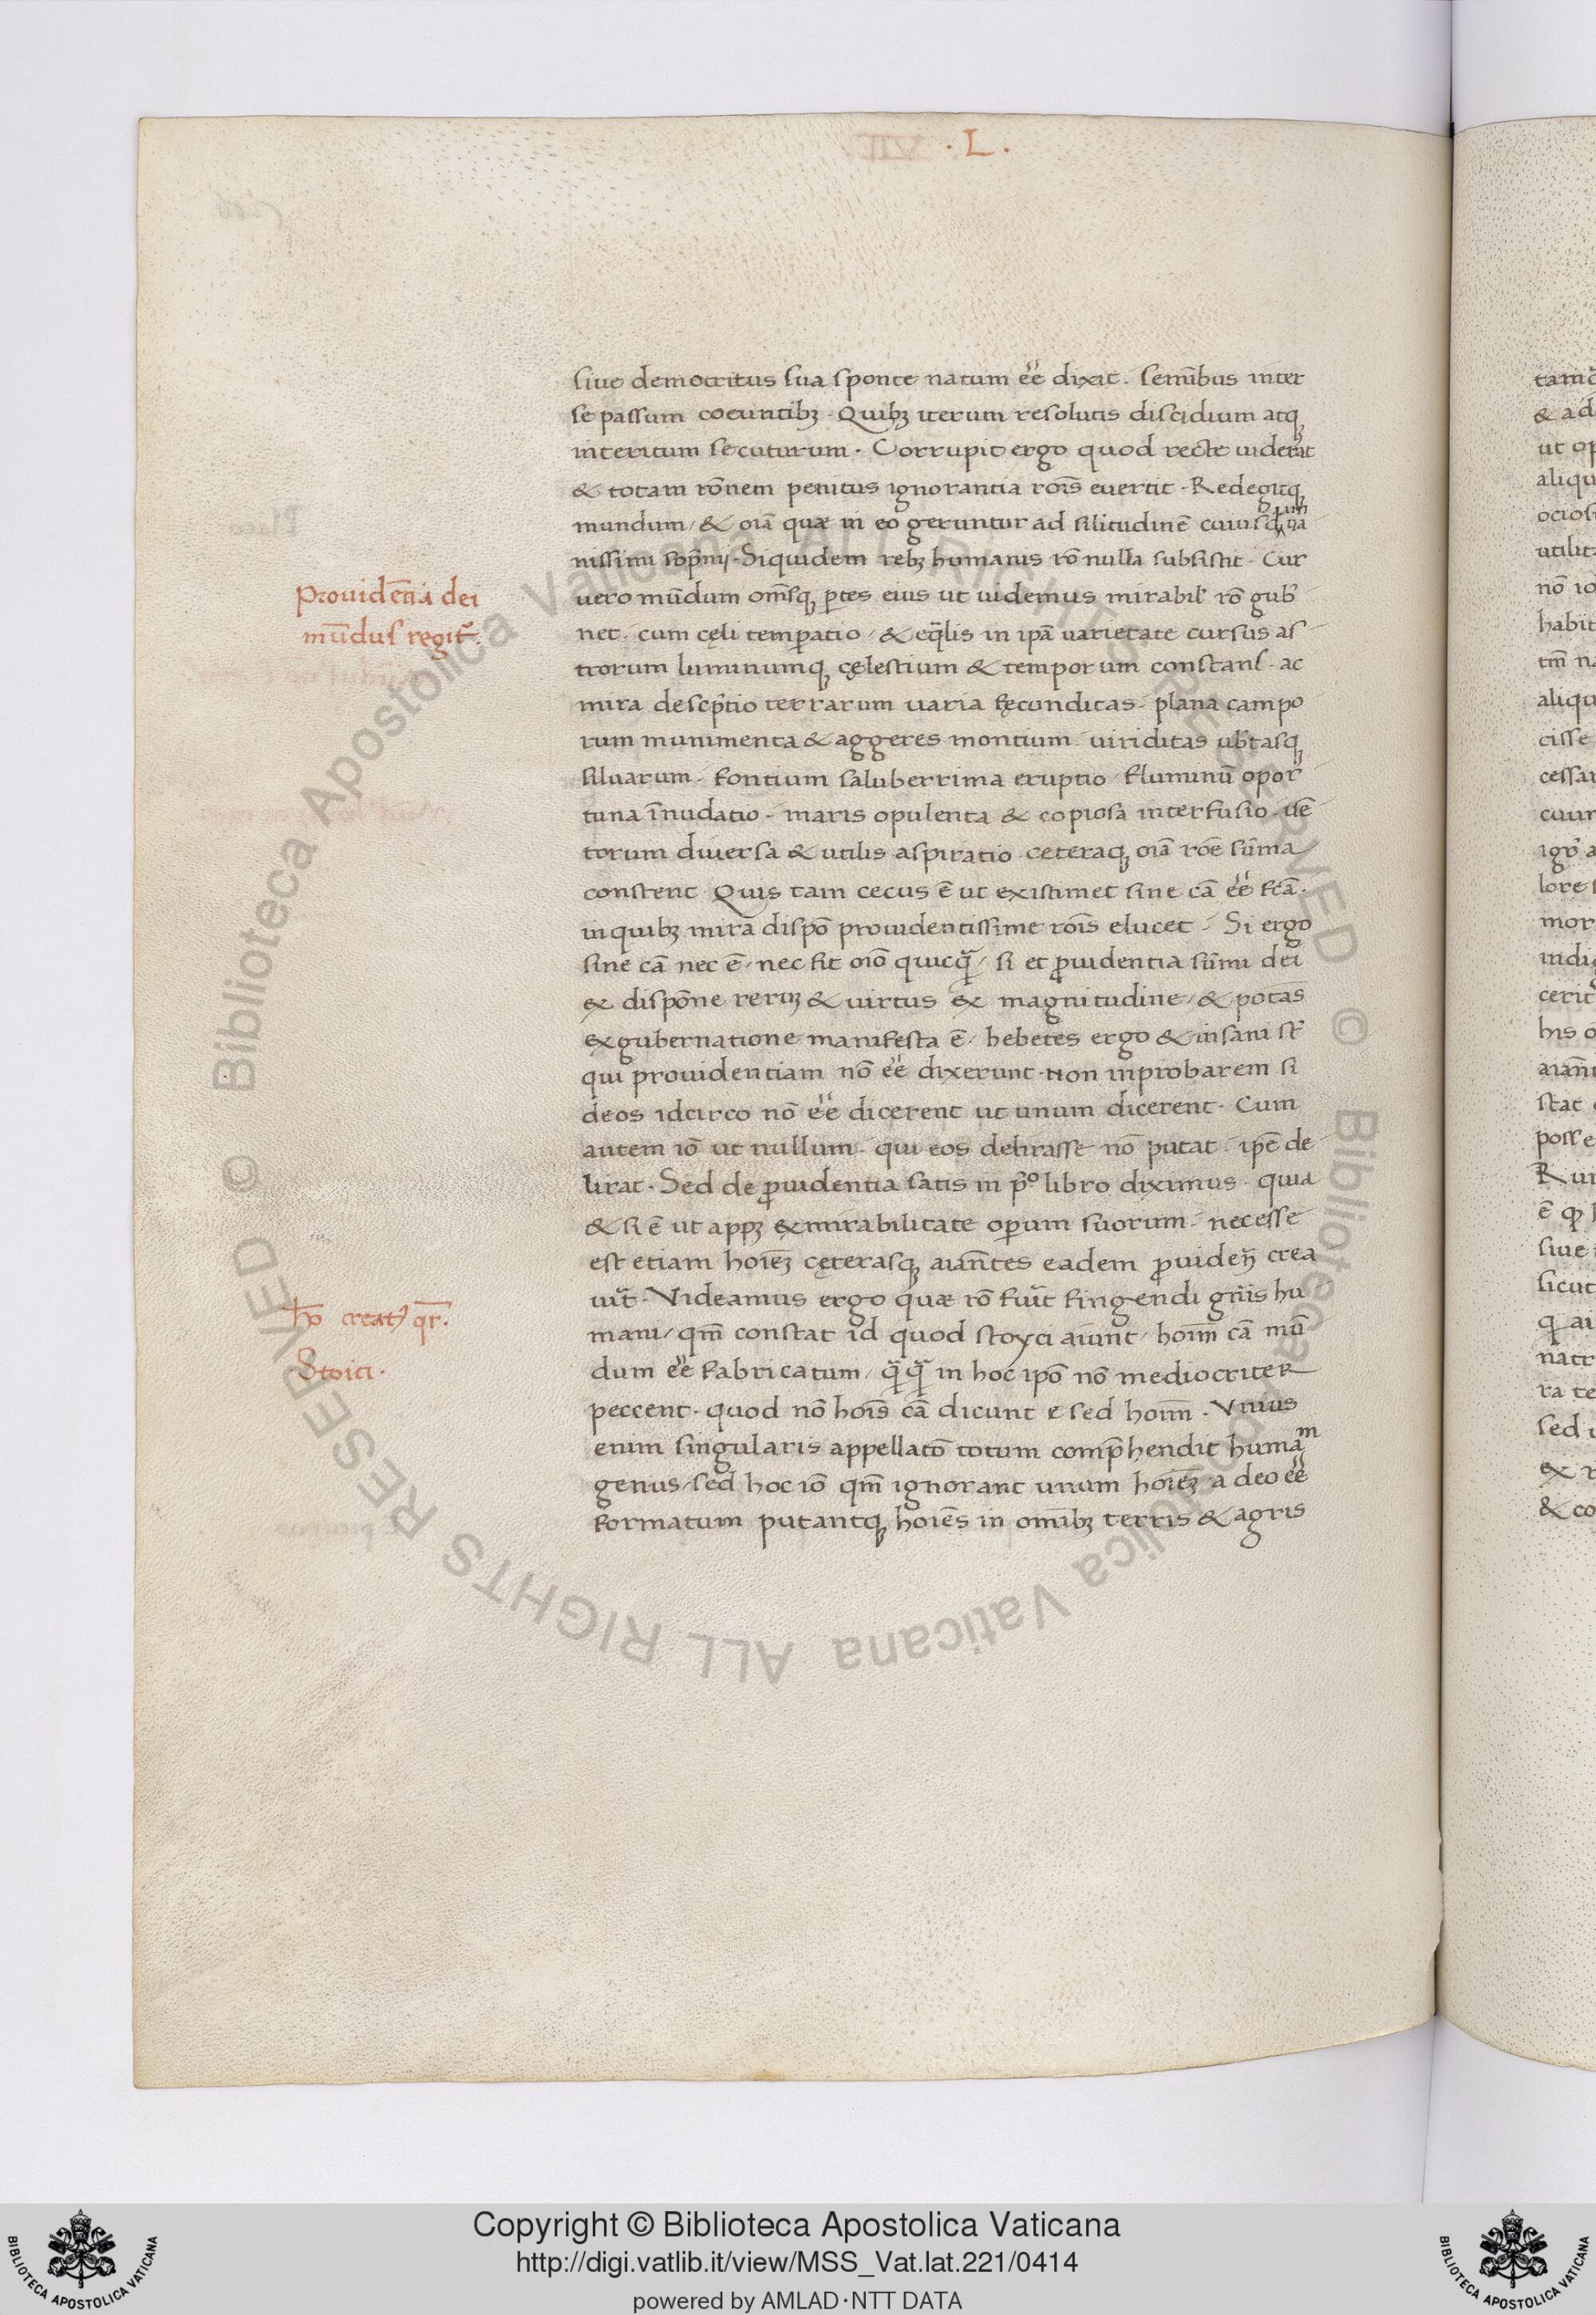 . L .
siue democritus sua sponte natum eẽ dixit. semĩbus inter
se passum coeuntibꝫ. Quibꝫ iterum resolutis discidium atqꝫ
interitum secuturum. Corrupit ergo quod recte uiderat
& totam rõnem penitus ignorantia rõis euertit. Redegitqꝫ
mundum/ & oĩa quæ in eo geruntur ad silitudinẽ cuiusdã
nissimi sõpnij. Siquidem rebꝫ humanis rõ nulla subsistit. Cur
Prouidẽtia dei
uero mũdum om̃sqꝫ ꝑtes eius ut uidemus mirabil' rõ gub'
mũdus regit᷑.
net. cum cęli temꝑatio/ & eq̃lis in ip̃a uarietate cursus as
trorum luminumqꝫ cęlestium & temporum constans. ac
mira descp̃tio terrarum uaria fęcunditas. plana campo
rum munimenta & aggeres montium. uiriditas ub'tasqꝫ
siluarum. fontium saluberrima eruptio/ fluminũ opor
tuna ĩnudatio. maris opulenta & copiosa interfusio. uẽ
torum diuersa & utilis aspiratio ceteraqꝫ oĩa rõe sũma
constent. Quis tam cecus ẽ ut existimet sine cã eẽ fcã.
in quibꝫ mira dispõ prouidentissime rõis elucet. Si ergo
sine cã nec ẽ/ nec fit oĩo quicq̃/ si et ꝓuidentia sũmi dei
ex dispõne rerum & uirtus ex magnitudine/ & potãs
ex gubernatione manifesta ẽ/ hebetes ergo & insani st̃
qui prouidentiam nõ eẽ dixerunt. non inprobarem si
deos idcirco nõ eẽ dicerent ut unum dicerent. Cum
autem iõ ut nullum. qui eos delirasse nõ putat. ip̃e de
lirat. Sed de ꝓuidentia satis in p̃º libro diximus. quia
& si ẽ ut appꝫ ex mirabilitate oꝑum suorum. necesse
est etiam hoĩeꝫ cęterasqꝫ aiãntes eadem ꝓuideñ crea
uit. Videamus ergo quæ rõ fuit fingendi gñis hu
hõ creatꝰ qr̃.
mani/ qm̃ constat id quod stoyci aiunt/ hoĩm cã mũ
Stoici.
dum eẽ fabricatum/ q̃q̃ in hoc ip̃o nõ mediocriter
peccent. quod nõ hoĩs cã dicunt ẽ sed hoĩm. Vnius
enim singularis appellatõ totum comp̃hendit humaᵐ
genus/ sed hoc iõ qm̃ ignorant unum hoĩeꝫ a deo eẽ
formatum putantqꝫ hoĩes in omĩbꝫ terris & agris
Copyright © Biblioteca Apostolica Vaticana
http://digi.vatlib.it/view/MSS_Vat.lat.221/0414
powered by AMLAD·NTT DATA